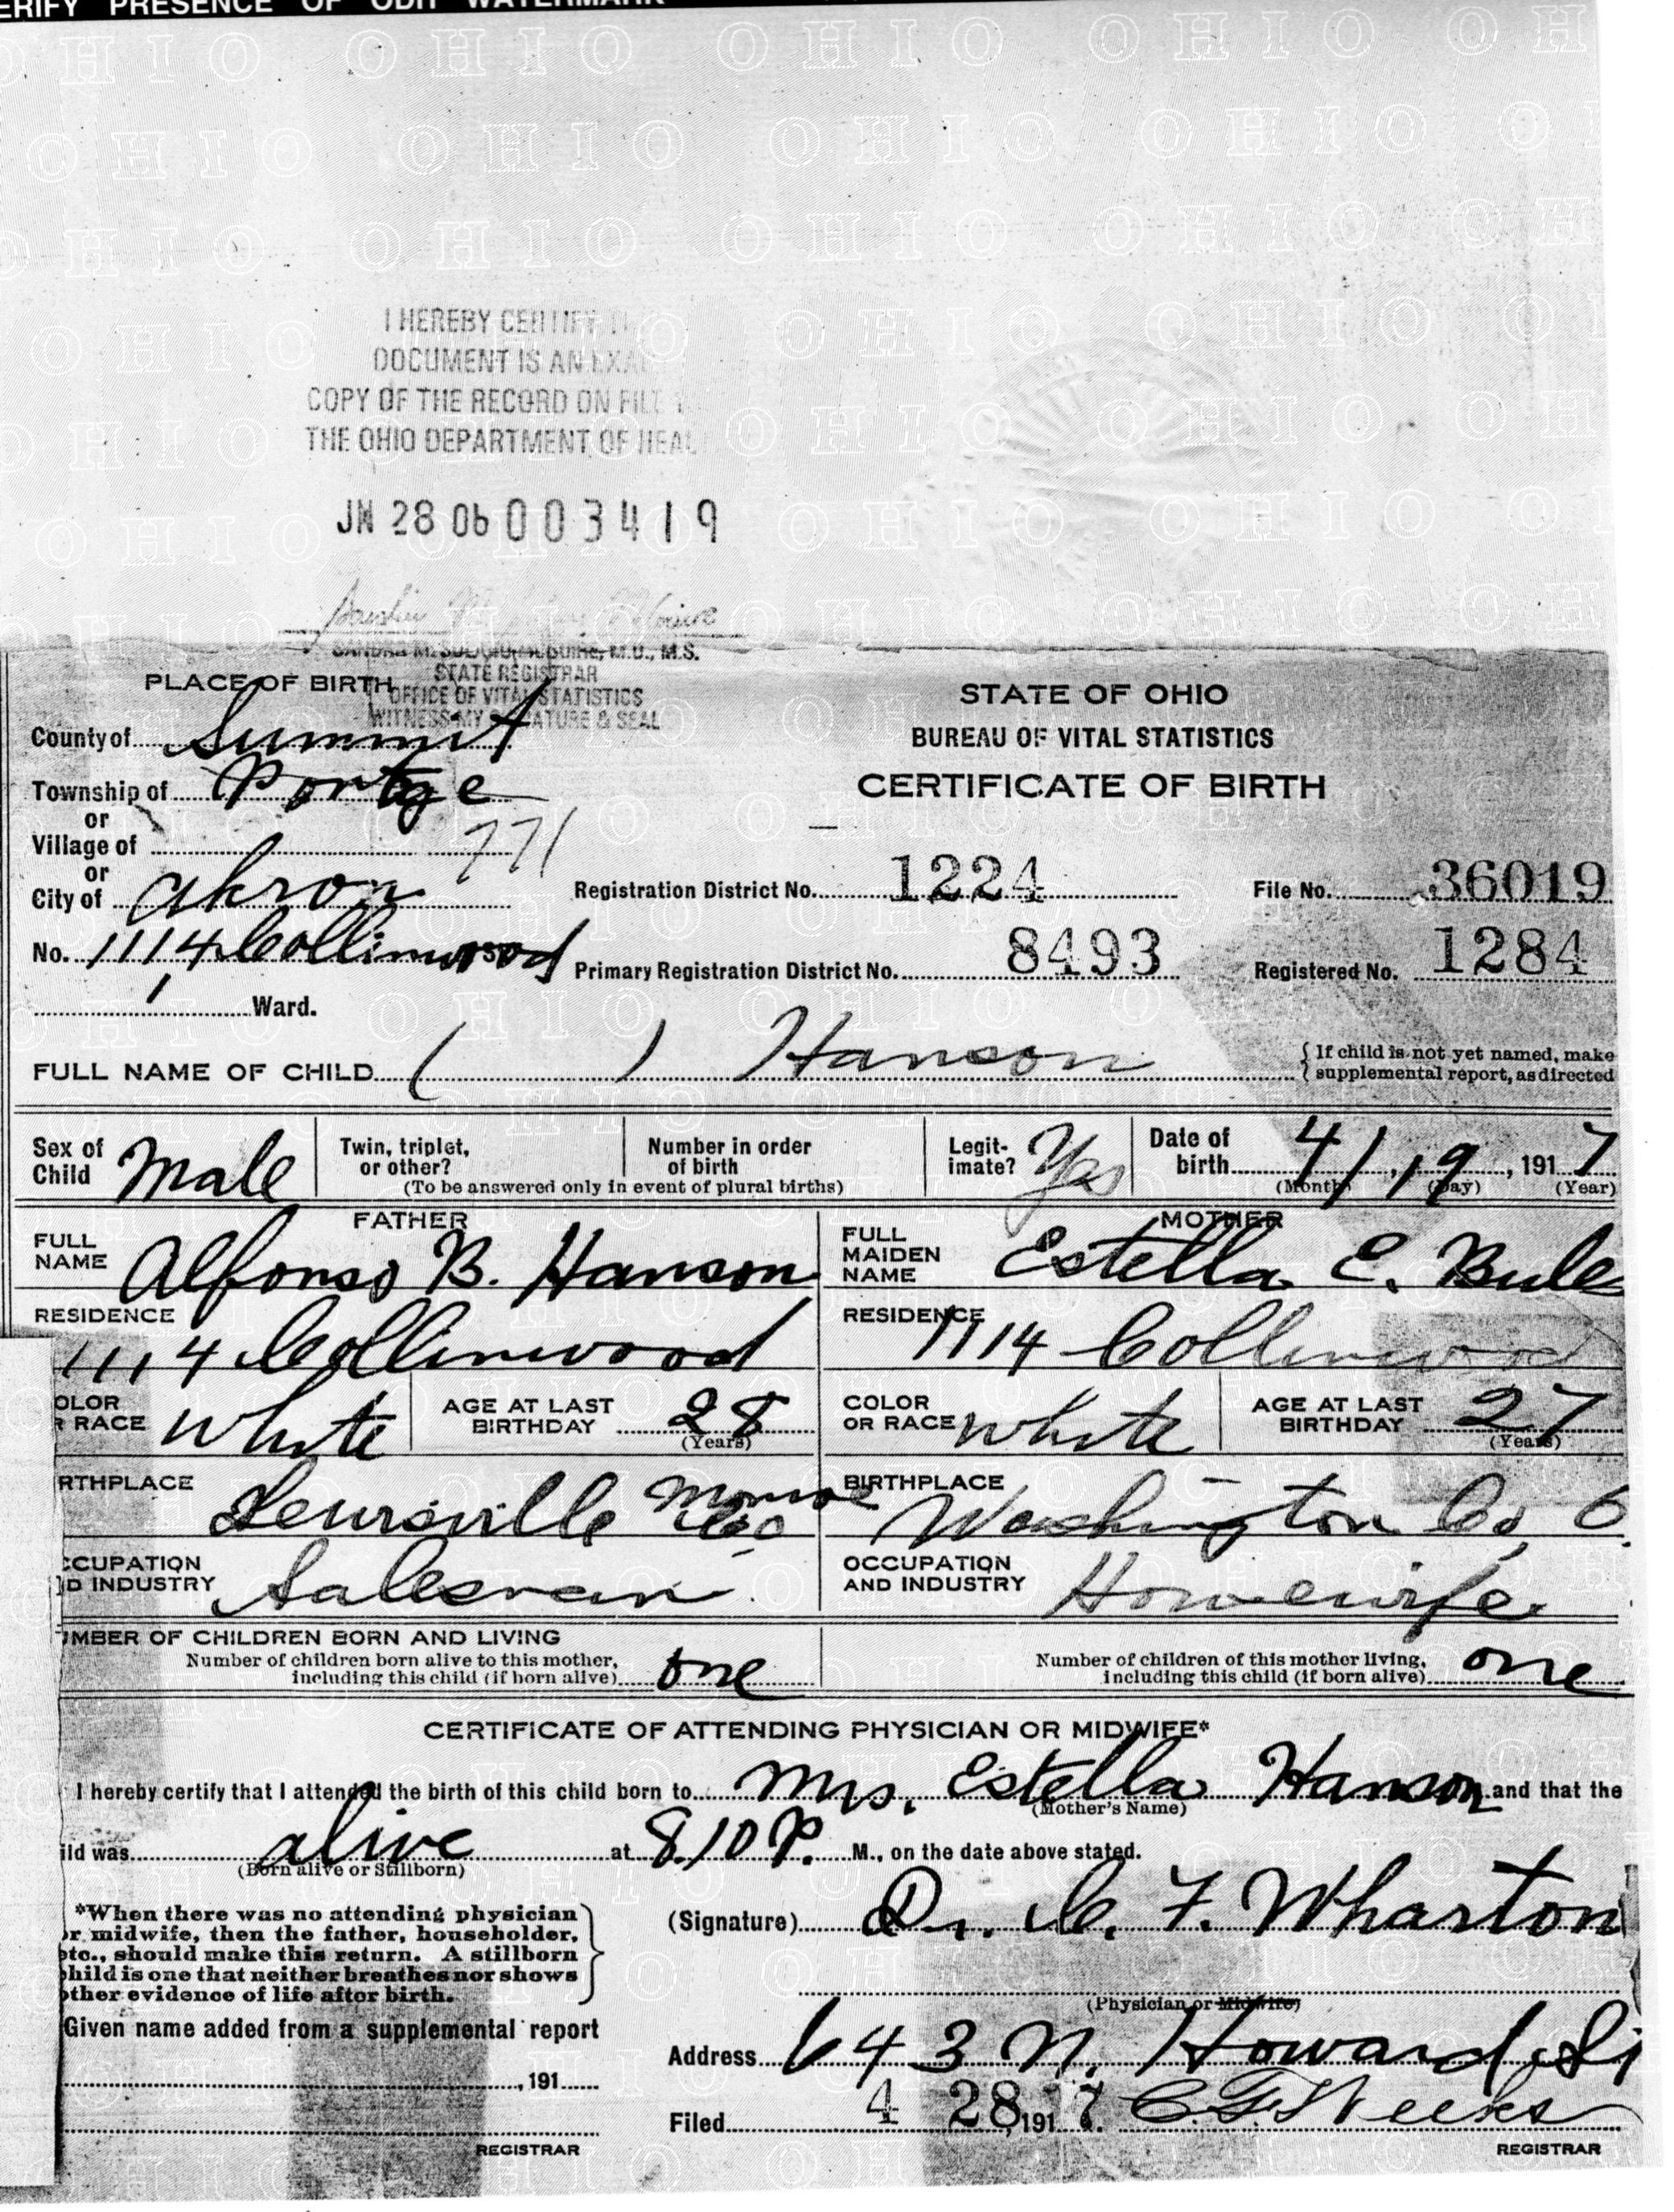 ERIFY PRESENCE OF ODH WATERMARK
I HEREBY CERTIFY
DOCUMENT IS AN EXA
COPY OF THE RECORD ON FILE
THE OHIO DEPARTMENT OF HEAL
JN 28 06 003419
M.S.
STATE REGISTRAR
OFFICE OF VITAL STATISTICS
WITNESS MY SIGNATURE & SEAL
PLACE OF BIRTH
STATE OF OHIO
BUREAU OF VITAL STATISTICS
CERTIFICATE OF BIRTH
County of Summit
Township of Portge
or
Village of 771
or
City of Akron
Registration District No. 1224 File No. 36019
No. 1114 Collinwood
Primary Registration District No. 8493 Registered No. 1284
Ward.
FULL NAME OF CHILD ( ) Hanson { If child is not yet named, make
{ supplemental report, as directed
Sex of Child Male Twin, triplet, or other? Number in order of birth Legit-imate? Yes Date of birth 4/19, 1917
(To be answered only in event of plural births) (Month) (Day) (Year)
FATHER MOTHER
FULL NAME Alfonso B. Hanson FULL MAIDEN NAME Estella E.
RESIDENCE 1114 Collinwood RESIDENCE 1114 Collinwood
OLOR R RACE White AGE AT LAST BIRTHDAY 28 (Years) COLOR OR RACE White AGE AT LAST BIRTHDAY 27 (Years)
RTHPLACE Lewisville Monroe BIRTHPLACE Washington Co, O
CCUPATION D INDUSTRY Salesman OCCUPATION AND INDUSTRY Housewife
UMBER OF CHILDREN BORN AND LIVING
Number of children born alive to this mother, including this child (if born alive) one Number of children of this mother living, including this child (if born alive) one
CERTIFICATE OF ATTENDING PHYSICIAN OR MIDWIFE*
I hereby certify that I attended the birth of this child born to Mrs. Estella Hanson and that the
(Mother's Name)
ild was alive at 8.10 P. M., on the date above stated.
(Born alive or Stillborn)
*When there was no attending physician
or midwife, then the father, householder,
etc., should make this return. A stillborn
child is one that neither breathes nor shows
other evidence of life after birth.
(Signature) Dr. C. F. Wharton
(Physician or Midwife)
Given name added from a supplemental report
Address 643 N. Howard St
, 191
Filed 4 28, 1917. C. F. Weeks
REGISTRAR REGISTRAR